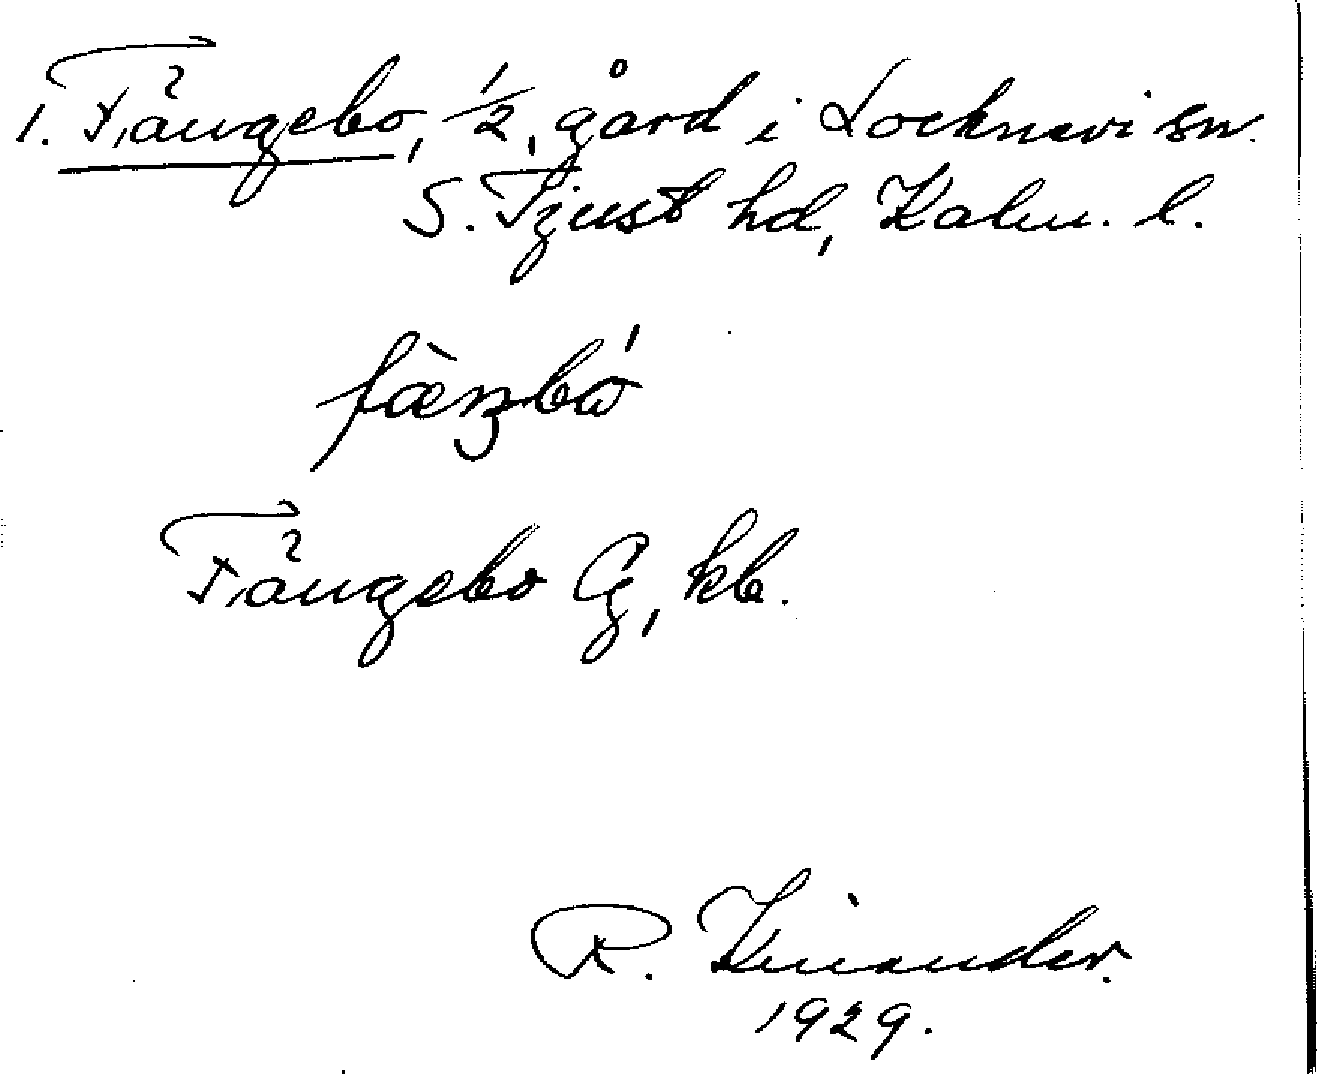 1. Fångebo, 1/2, gård i Locknevi sn.
S. Tjust hd, Kalm. l.
Fångebo Cg, kb.
R. Kinander.
1929.